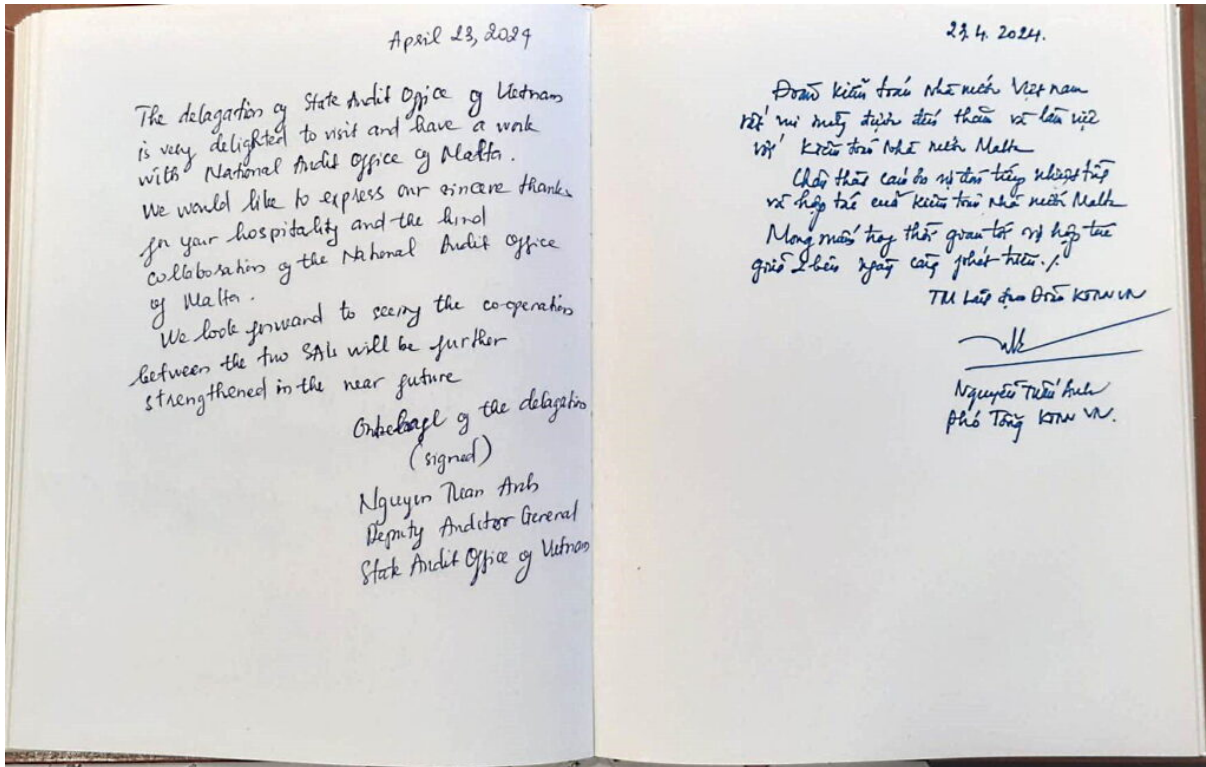 April 23, 2024
The delagation of State Audit Office of Vietnam
is very delighted to visit and have a work
with National Audit Office of Malta.
We would like to express our sincere thanks
for your hospitality and the kind
collaboration of the National Audit Office
of Malta.
We look forward to seeing the co-operation
between the two SAIs will be further
strengthened in the near future
On behalf of the delegation
(signed)
Nguyen Tuan Anh
Deputy Auditor General
State Audit Office of Vietnam
23.4.2024.
Đoàn Kiểm toán nhà nước Việt nam
rất vui mừng được đến thăm và làm việc
với Kiểm toán nhà nước Malta
Chân thành cảm ơn sự đón tiếp nhiệt tình
và hợp tác của Kiểm toán nhà nước Malta
Mong muốn thời gian tới sự hợp tác
giữa 2 bên ngày càng phát triển./.
TM Lãnh đạo Đoàn KTNN VN
Nguyễn Tuấn Anh
Phó Tổng KTNN VN.